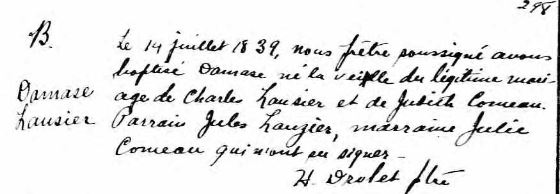 298
B.
Le 14 juillet 1839, nous prêtre soussigné avons
baptisé Damase né la veille du légitime mari-
Damase
age de Charles Lausier et de Judith Comeau.
Lausier
Parrain Jules Lauzier, marraine Julie
Comeau qui n'ont su signer -
H. Drolet ptre